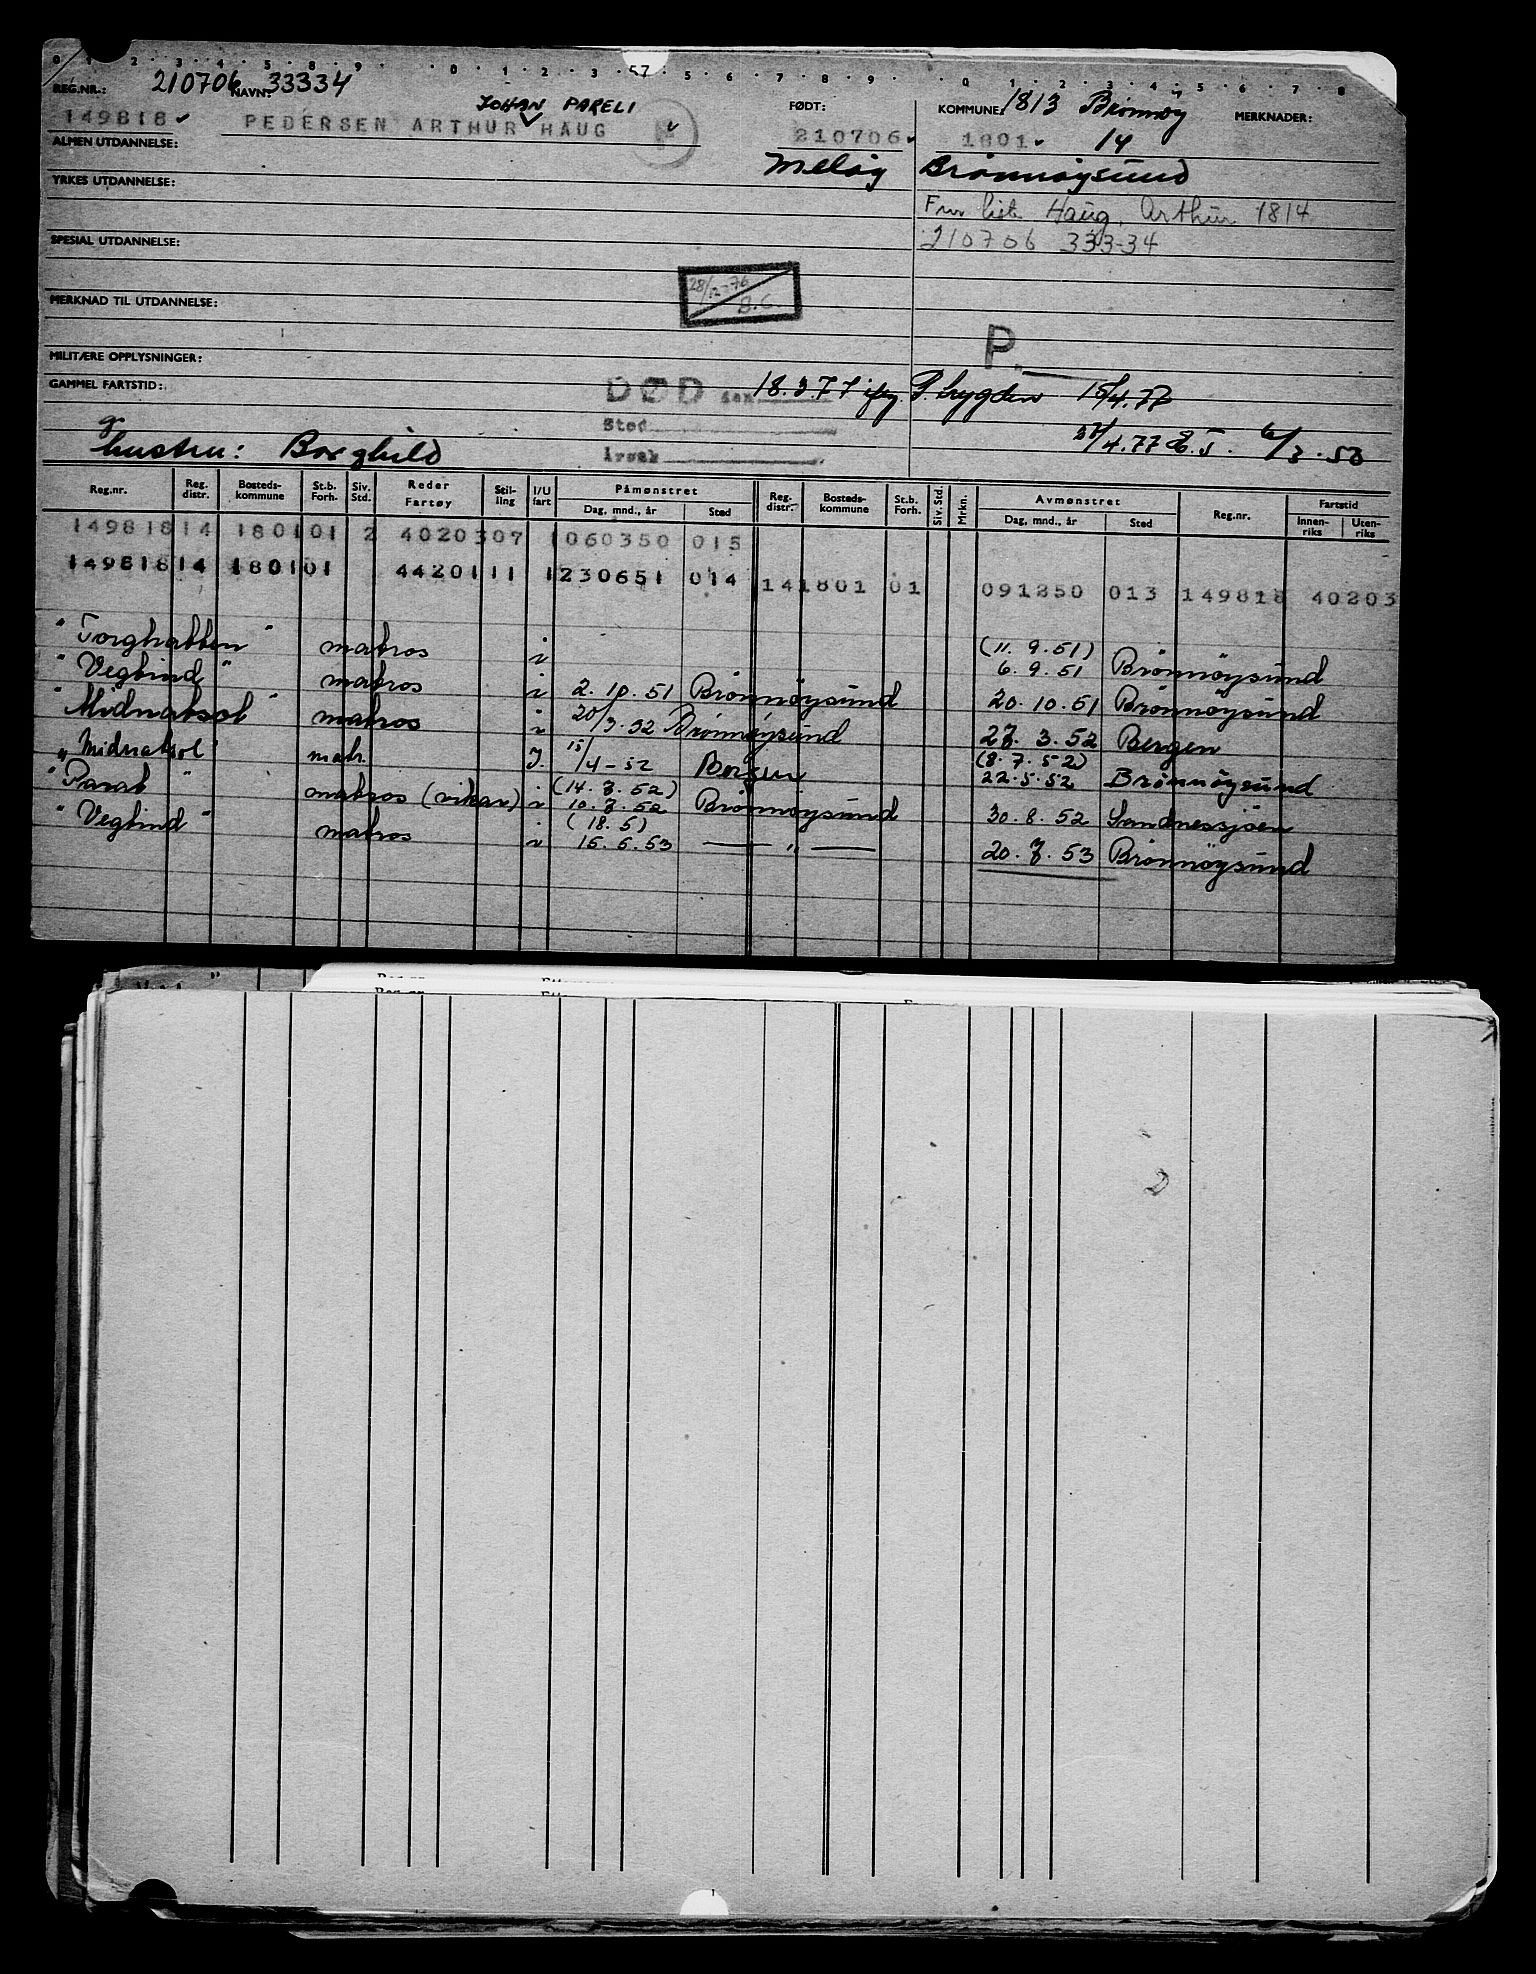 0 1 2 3 4 5 8 9 0 1 2 3 57 5 6 7 8 9 0 1 2 3 4 5 6 7 8
REG.NR.: 210706 NAVN: 33334
JOHAN PARELI FØDT: KOMMUNE: 1813 Brønnøy MERKNADER:
149818 PEDERSEN ARTHUR HAUG 210706 1801 14
ALMEN UTDANNELSE: Meløy Brønnøysund
YRKES UTDANNELSE:
Haug, Arthur 1814
SPESIAL UTDANNELSE: 210706 333-34
28/12-76
MERKNAD TIL UTDANNELSE: B.C.
P.
MILITÆRE OPPLYSNINGER:
GAMMEL FARTSTID: DØD den 18.3.77 P.trygden 15/4.77
Sted
/4.77 6/3.53
g hustru: Borghild Årsak
Reg.nr. Reg. distr. Bosteds-kommune St.b. Forh. Siv. Std. Reder Fartøy Stil-ling I/U fart Påmønstret Dag, mnd., år Sted Reg-distr. Bosteds-kommune St.b. Forh. Siv. Std. Mrkn. Avmønstret Dag, mnd., år Sted Reg.nr. Fartstid Innen-riks Uten-riks
149818 14 1801 01 2 4020307 1 060350 015
149818 14 1801 01 4420111 1 230651 014 14 1801 01 091250 013 149818 40203
"Torghatten" matros i (11.9.51) 6.9.51 Brønnøysund
"Vegtind" matros i 2.10.51 Brønnøysund 20.10.51 Brønnøysund
"Midnatsol" matros i 20/3.52 Brønnøysund 27.3.52 Bergen
"Midnatsol" matr. J. 15/4-52 Bergen (8.7.52) 22.5.52 Brønnøysund
"Parat" matros (vikar) i (14.7.52) 10.7.52 Brønnøysund 30.8.52 Sandnessjøen
"Vegtind" matros i (18.5) 15.5.53 — " — 20.7.53 Brønnøysund
D
1